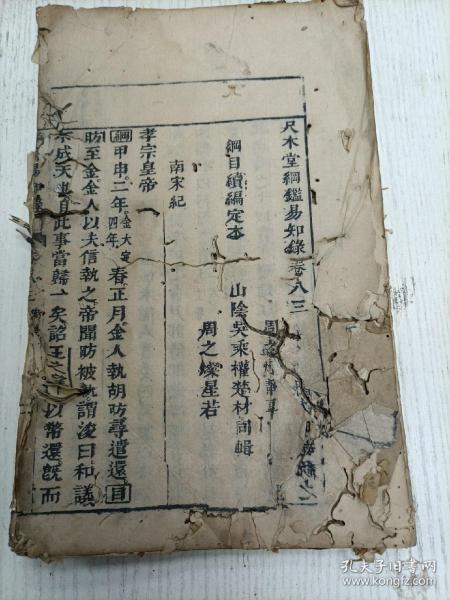 尺木堂綱鑑易知錄卷八三
周之
綱目續編定本 山陰吳乘權楚材同輯
周之燦星若
南宋紀
孝宗皇帝
綱甲申二年金大定四年春正月金人執胡昉尋遣還目
昉至金金人以失信執之帝聞昉被執謂浚曰和議
不成天也自此事當歸一矣詔王之望以幣還旣而
孔夫子旧书网
www.kongfz.com